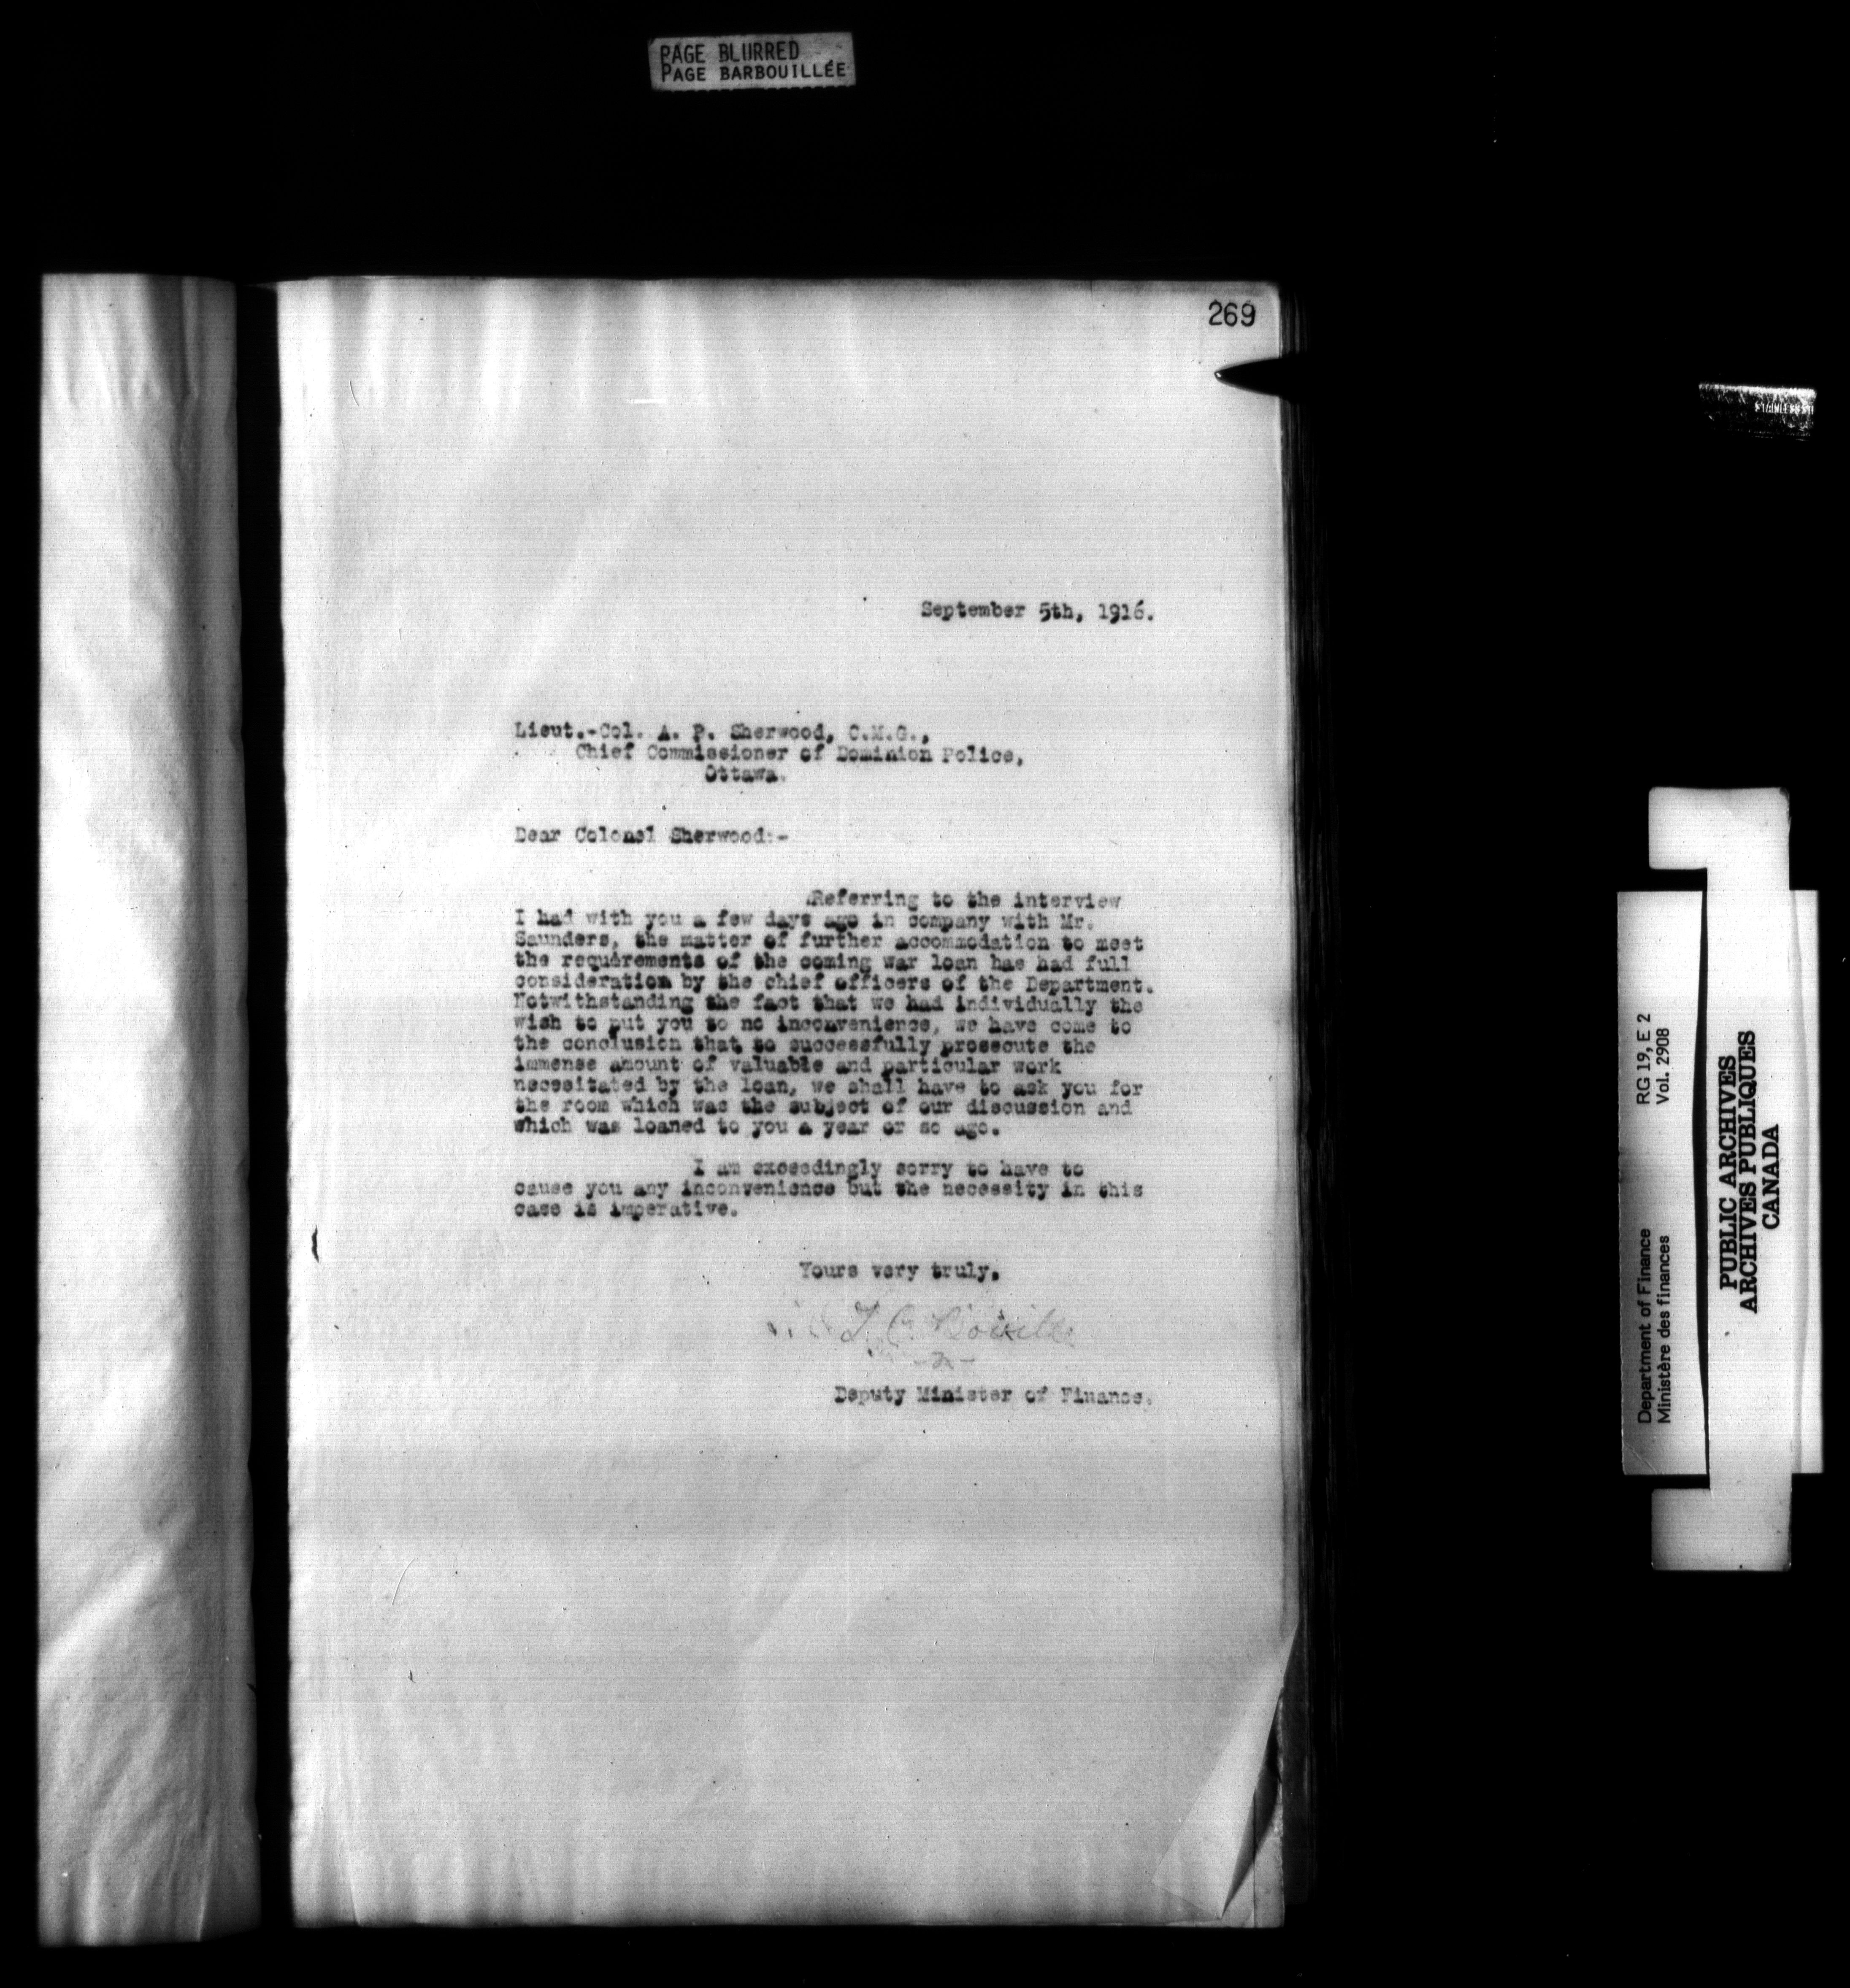 PAGE BLURRED
PAGE BARBOUILLÉE
269
September 5th, 1916.
Lieut.-Col. A. P. Sherwood, C.M.G.,
Chief Commissioner of Dominion Police,
Ottawa.
Dear Colonel Sherwood:-
Referring to the interview
I had with you a few days ago in company with Mr.
Saunders, the matter of further accommodation to meet
the requérements of the coming war loan has had full
consideration by the chief officers of the Department.
Notwithstanding the fact that we had individually the
wish to put you to no inconvenience, we have come to
the conclusion that to successfully prosecute the
immense amount of valuable and particular work
necessitated by the loan, we shall have to ask you for
the room which was the subject of our discussion and
which was loaned to you a year or so ago.
I am exceedingly sorry to have to
cause you any inconvenience but the necessity in this
case is imperative.
Yours very truly,
T. C. Boville
Deputy Minister of Finance.
Department of Finance RG 19, E 2
Ministère des finances Vol. 2908
PUBLIC ARCHIVES
ARCHIVES PUBLIQUES
CANADA